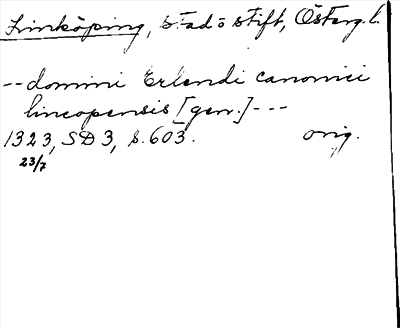 Linköping, stad o stift, Österg. l.
-- domini Erlendi canonici
lincopensis [gen.] ---
1323, SD 3, s. 603. orig.
23/7